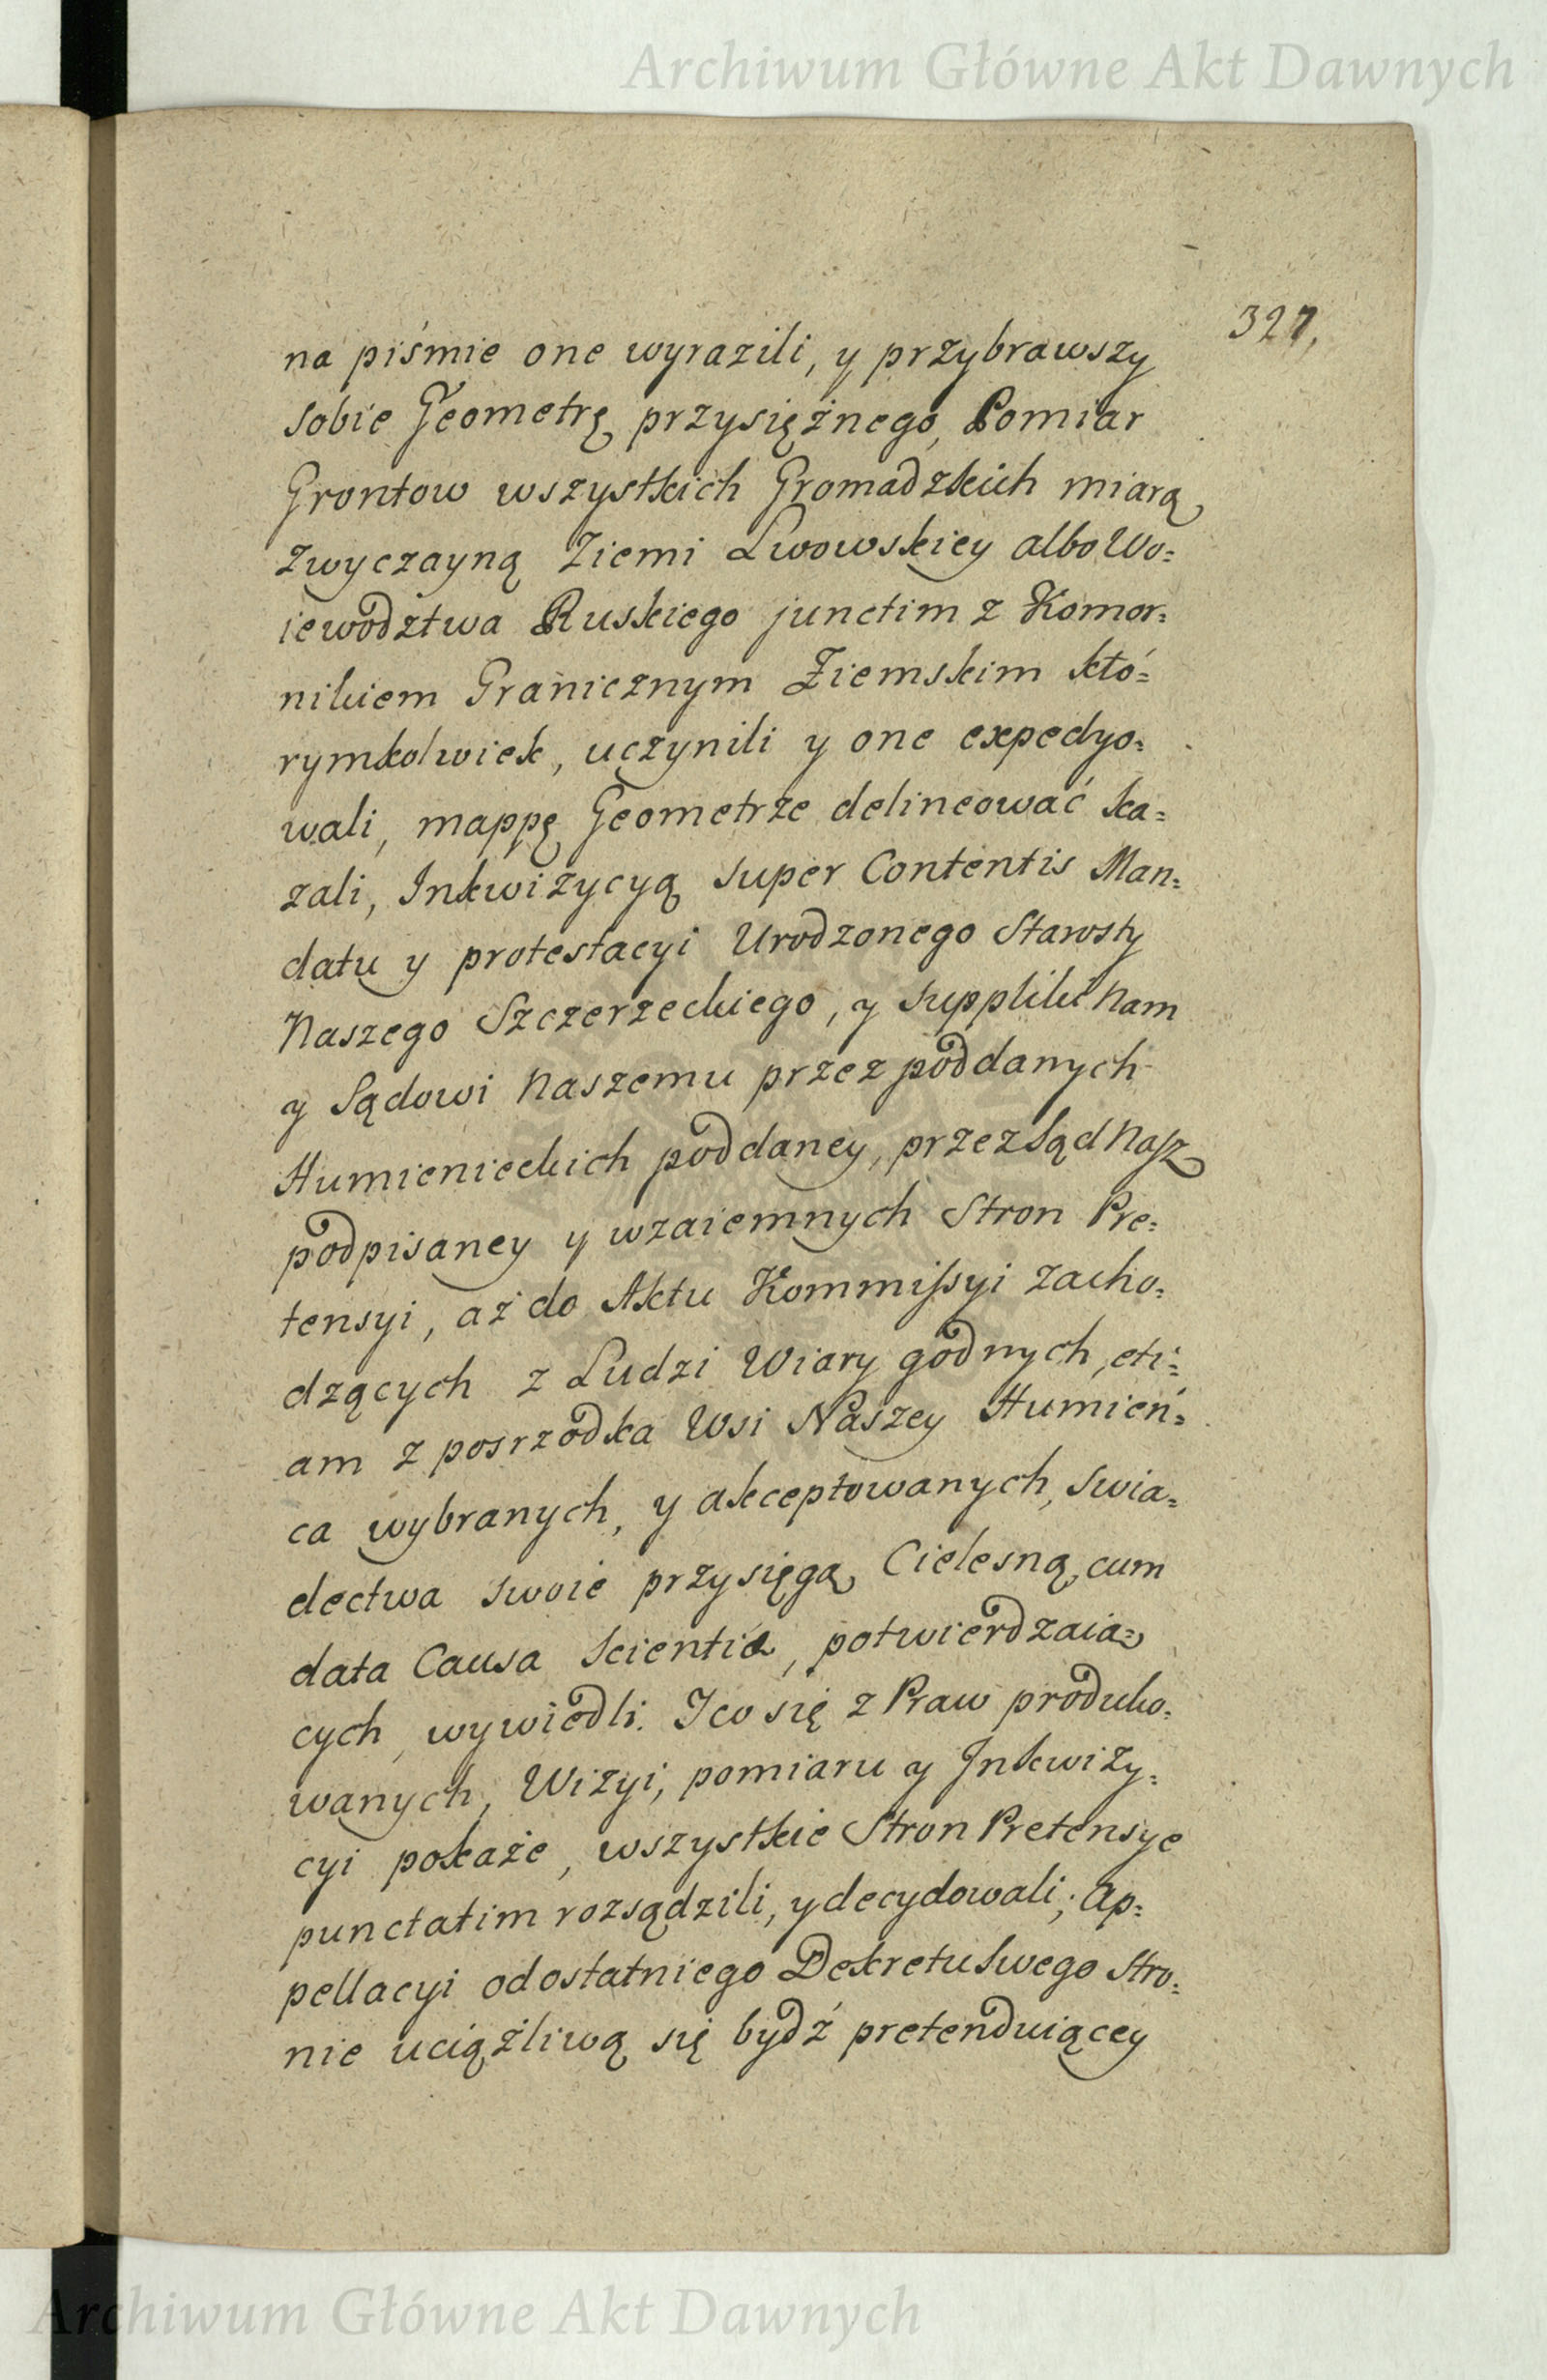 Archiwum Główne Akt Dawnych
327,
na piśmie one wyrazili, y przybrawszy
sobie Geometrę przysiężnego, Pomiar
Grontow wszystkich Gromadzkich miarą
zwyczayną Ziemi Lwowskiey albo Wo=
iewodztwa Ruskiego junctim z Komor=
nikiem Granicznym Ziemskim któ=
rymkolwiek, uczynili y one expedyo=
wali, mappę Geometrze delineować ka=
zali, Inkwizycyą super Contentis Man=
datu y protestacyi Urodzonego Starosty
Naszego Szczerzeckiego, y suppliki Nam
y Sądowi Naszemu przez poddanych
Humienieckich poddaney, przez Sąd Nasz
podpisaney y wzaiemnych Stron Pre=
tensyi, aż do Aktu Kommissyi zacho=
dzących z Ludzi Wiary godnych, eti=
am z posrzodka Wsi Naszey Humień=
ca wybranych, y akceptowanych, swia=
dectwa swoie przysięgą Cielesną, cum
data Causa scientiæ, potwierdzaią=
cych, wywiedli. I co się z Praw produko=
wanych, Wizyi, pomiaru y Inkwizy=
cyi pokaże, wszystkie Stron Pretensye
punctatim rozsądzili, y decydowali; Ap=
pellacyi od ostatniego Dekretu Swego Stro=
nie uciążliwą się bydź pretenduiącey
Archiwum Główne Akt Dawnych